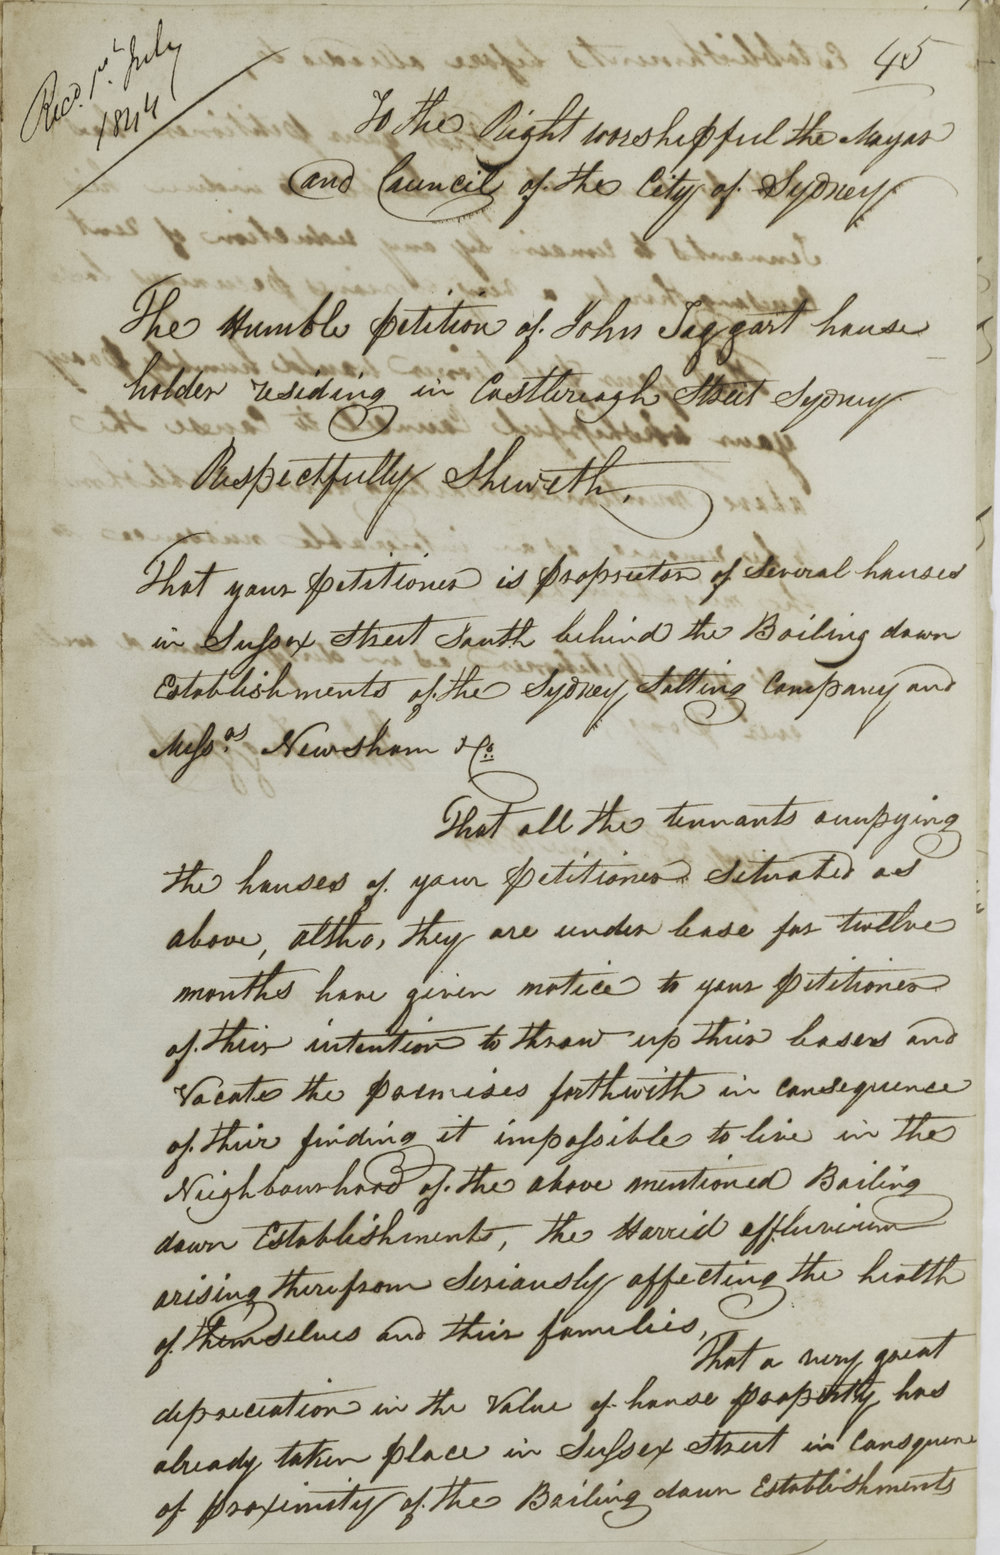 Recd. 1st July
1844
45
To the Right worshipful the Mayor
and Council of the City of Sydney
The Humble petition of John Taggart house
holder residing in Castlereagh Street Sydney
Respectfully Sheweth,
That your petitioner is proprietor of Several houses
in Sussex Street South behind the Boiling down
Establishments of the Sydney Salting Company and
Messrs Newsham & Co
That all the tennants occupying
the houses of your petitioner situated as
above, altho, they are under lease for twelve
months have given notice to your petitioner
of their intention to throw up their leases and
Vacate the premises forthwith in consequence
of their finding it impossible to live in the
Neighbourhood of the above mentioned Boiling
down Establishments, the Horrid effluvium
arising therefrom Seriously affecting the health
of themselves and their families,
That a very great
depreciation in the Value of house property has
already taken place in Sussex Street in Consequence
of proximity of the Boiling down Establishments